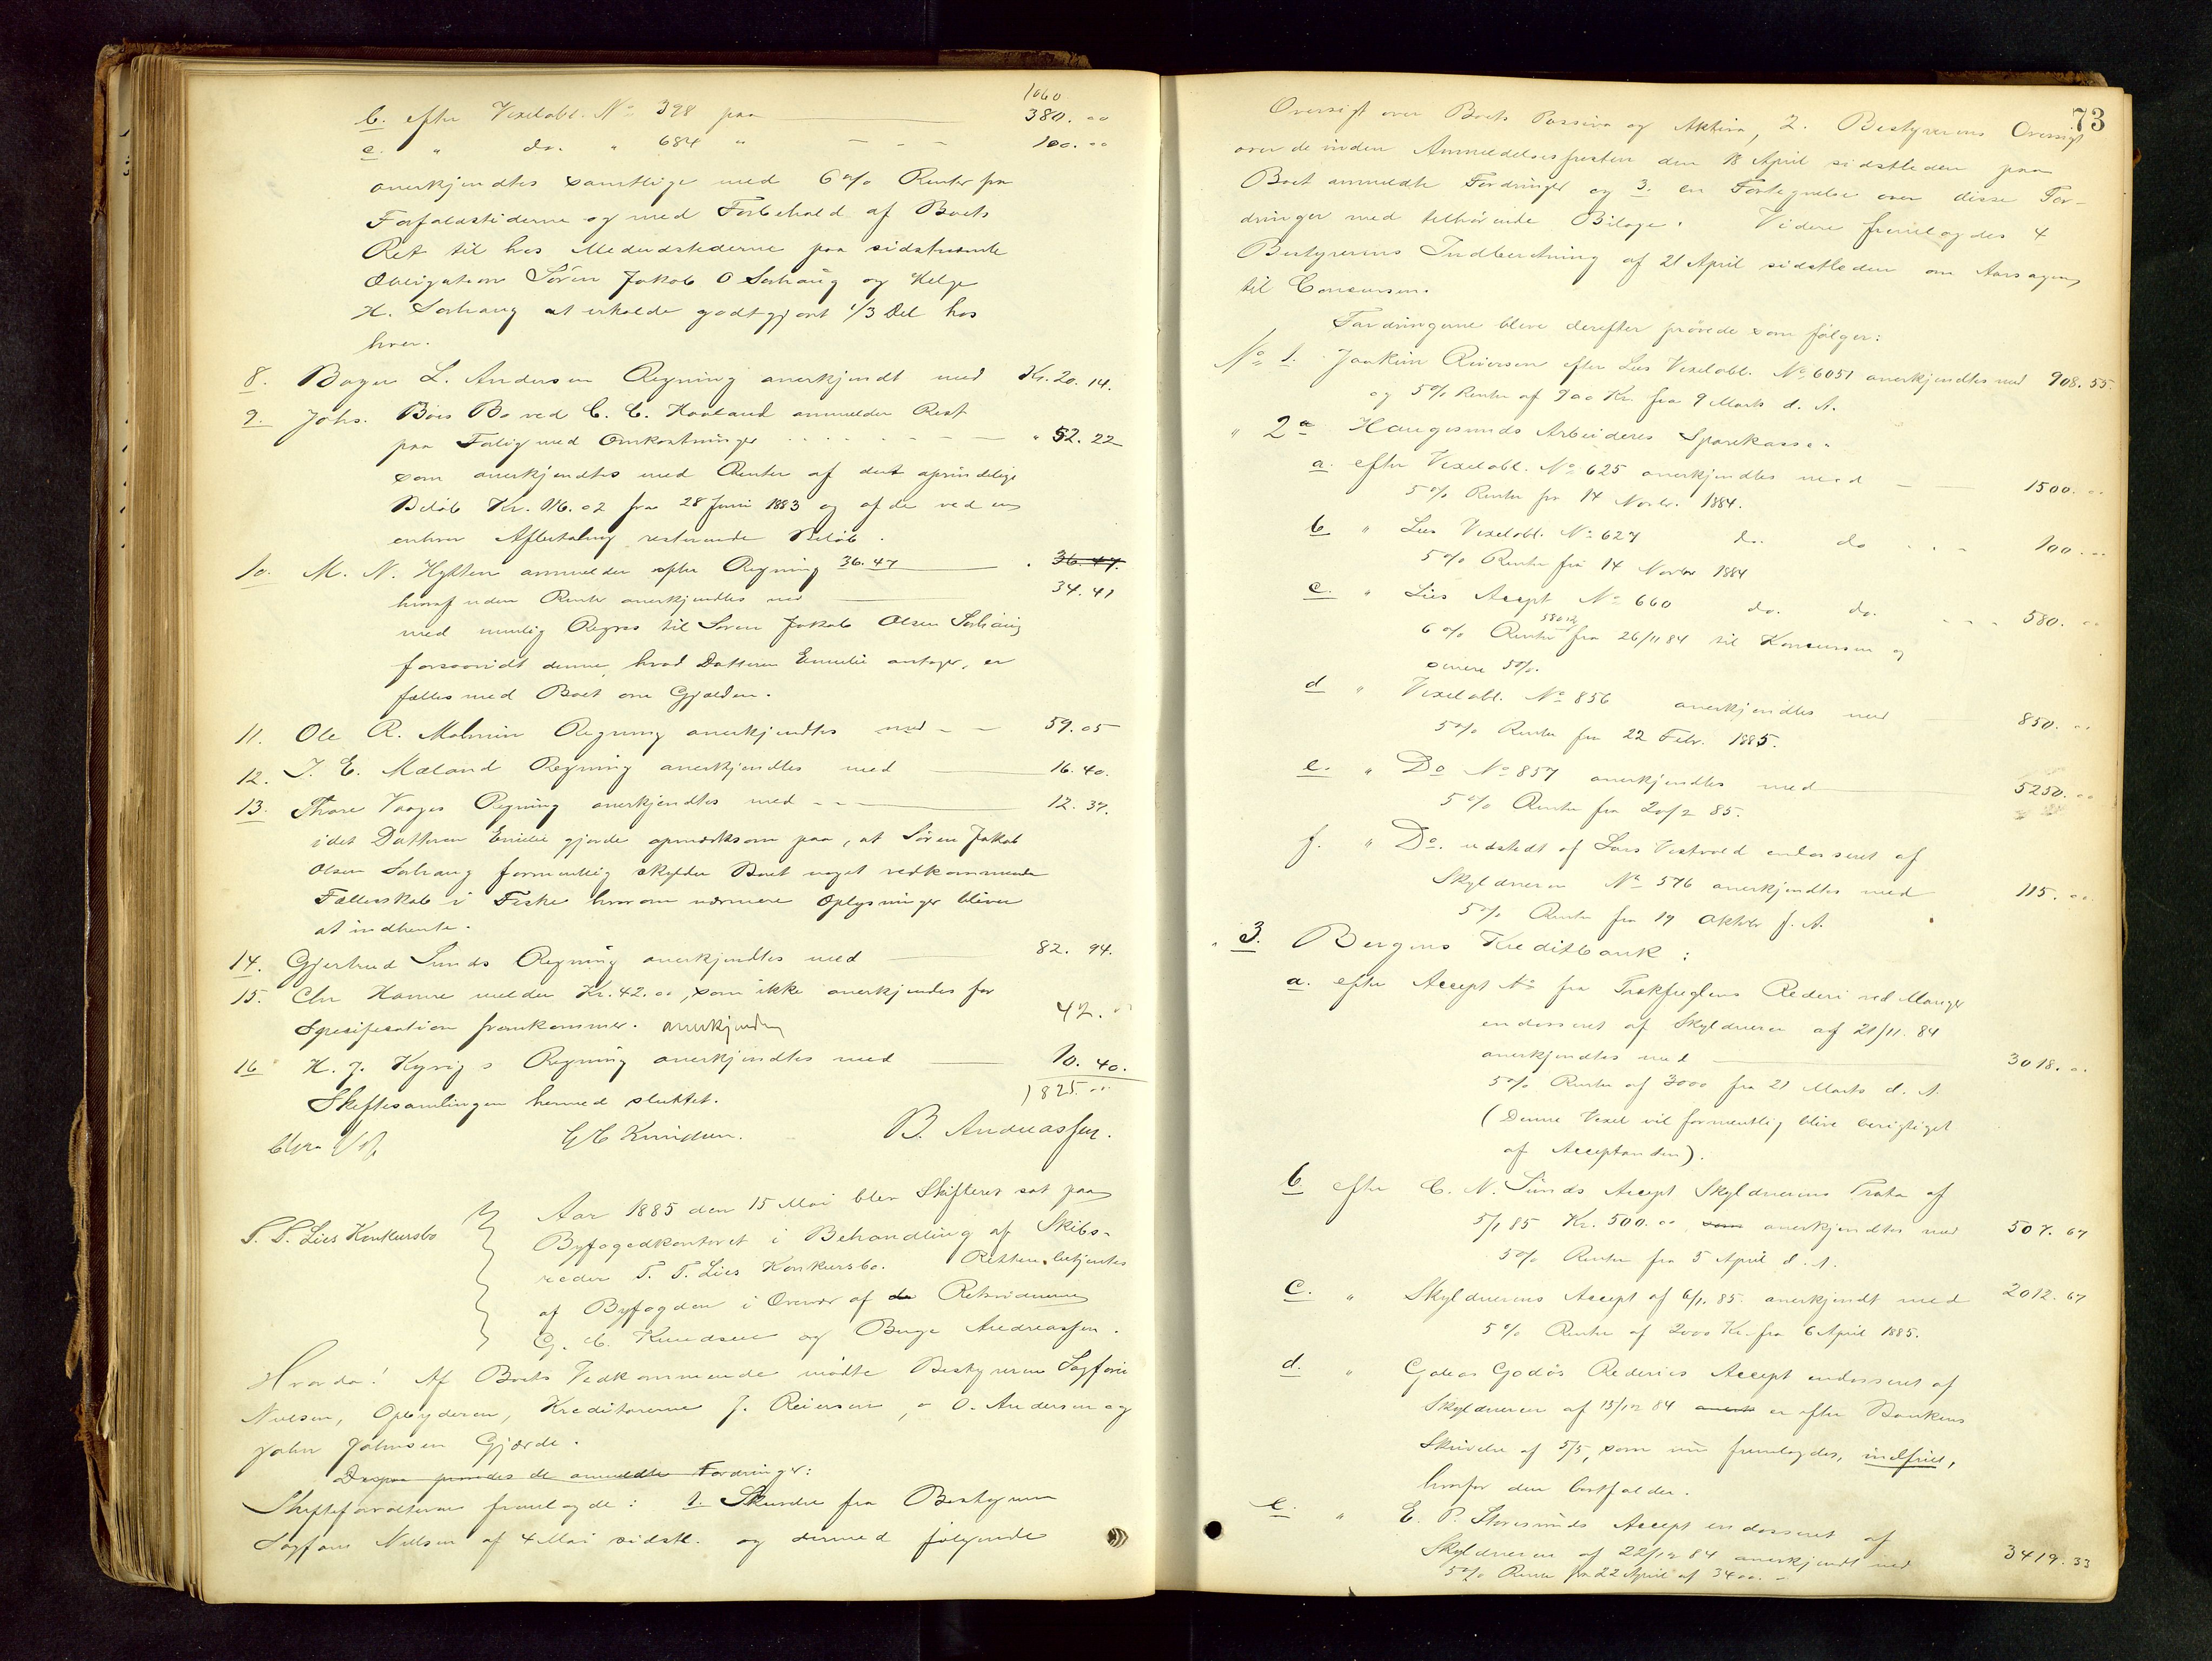 1060
b. efter Vexelobl. No 398 paa 380.00
c. " do. " 684 " - - - 100.00
anerkjendtes samtlige med 6% Renter fra
Forfaldstiderne og med Forbehold af Boets
Ret til hos Medudstederne paa sidstnævnte
Obligation Sören Jakob O Sørhaug og Helge
H. Sørhaug at erholde godtgjort 1/3 Del hos
hver.
8. Bager L. Andersen Regning anerkjendt med Kr. 20.14.
9. Johs. Böes Bo ved C. C. Haaland anmelder Rest
paa Forlig med Omkostninger " 52.22
som anerkjendtes med Renter af det oprindelige
Belöb Kr. 116.02 fra 28 Juni 1883 og af de ved en
enhver Afbetaling resterende Beløb.
10. M. N. Hytten anmelder efter Regning 36.47 " 36.47.
hvoraf uden Rente anerkjendtes med 34.41
med mulig Regres til Sören Jakob Olsen Sørhaug
forsaavidt denne, hvad Datteren Emelie antager, er
fælles med Boet om Gjælden.
11. Ole R. Malmin Regning anerkjendtes med - - 59.05
12. T. E. Mæland Regning anerkjendtes med 16.40.
13. Thore Vaages Regning anerkjendtes med 12.37.
idet Datteren Emelie gjorde opmærksom paa, at Sören Jakob
Olsen Sørhaug formentlig skylder Boet noget vedkommende
Fællesskab i Fiske hvorom nærmere Oplysninger bliver
at indhente.
14. Gjertrud Sunds Regning anerkjendtes med 82.94.
15. Chr Hamre melder Kr. 42.00, som ikke anerkjendes før
Spesifikation fremkommer. anerkjendes 42.00
16 H. J. Kyvigs Regning anerkjendtes med 10.40.
Skiftesamlingen hermed sluttet. 1825.00
G C Knudsen. B. Andreassen.
T. T. Lies Konkursbo
Aar 1885 den 15 Mai blev Skifteret sat paa
Byfogedkontoret i Behandling af Skibs-
reder T. T. Lies Konkursbo. Retten betjentes
af Byfogden i Overvær af de Retsvidnerne
G. C. Knudsen og Berge Andreassen.
Hvorda! Af Boets Vedkommende mödte Bestyreren Sagfører
Nielsen, Opbyderen, Kreditorerne J. Reiersen, O. Andersen og
John Johnsen Gjærde.
Derpaa prøvedes de anmeldte Fordringer:
Skifteforvalteren fremlagde: 1. Skrivelse fra Bestyreren
Sagfører Nielsen af 4 Mai sidstl. og dermed følgende
73
Oversigt over Boets Passiva og Aktiva, 2. Bestyrerens Oversigt
over de inden Anmeldelsesfristen den 18 April sidstleden paa
Boet anmeldte Fordringer og 3. en Fortegnelse over disse For-
dringer med tilhörende Bilage. Videre fremlagdes 4
Bestyrerens Indberetning af 21 April sidstleden om Aarsagen
til Concursen.
Fordringerne bleve derefter prövede som fölger:
No 1. Joakim Reiersen efter Lies Vexelobl. No 6051 anerkjendtes med 908.55.
og 5% Renter af 900 Kr. fra 9 Marts d. A.
" 2a Haugesunds Arbeideres Sparekasse.
a. efter Vexelobl. No 625 anerkjendtes med 1500.00
5% Renter fra 14 Novbr. 1884.
b " Lies Vexelobl. No 627 do. do 100.00
5% Renter fra 14 Novbr 1884
c. " Lies Accept No 660 do. do. 580.00
6% Renter fra 26/11 84 til Konkursen og
senere 5%.
d " Vexelobl. No 856 anerkjendtes med 850.00
5% Renter fra 22 Febr. 1885.
e. " Do No 857 anerkjendtes med 5250.00
5% Renter fra 20/2 85.
f. " Do. udstedt af Lars Vestvold endosseret af
Skyldneren No 576 anerkjendtes med 115.00
5% Renter fra 17 Oktbr f. A.
" 3. Bergens Kreditbank:
a. efter Accept No fra Trækfuglens Rederi ved Manger
endosseret af Skyldneren af 21/11. 84
anerkjendtes med 3018.00
5% Renter af 3000 fra 21 Marts d. A.
(Denne Vexel vil formentlig blive berigtiget
af Acceptanten).
b efter C. N. Sunds Accept Skyldnerens Trata af
5/1 85 Kr. 500.00 som anerkjendtes med 507.67
5% Renter fra 5 April d. A.
c. " Skyldnerens Accept af 6/1. 85 anerkjendt med 2012.67
5% Renter af 2000 Kr. fra 6 April 1885.
d. " Galeas Godös Rederies Accept endosseret af
Skyldneren af 15/12 84 er efter Bankens
Skrivelse af 5/5, som nu fremlagdes, indfriet,
hvorfor den bortfalder.
e. " E. P. Storesunds Accept endosseret af
Skyldneren af 22/12 84 anerkjendt med 3419.33
5% Rente fra 22 April af 3400.-